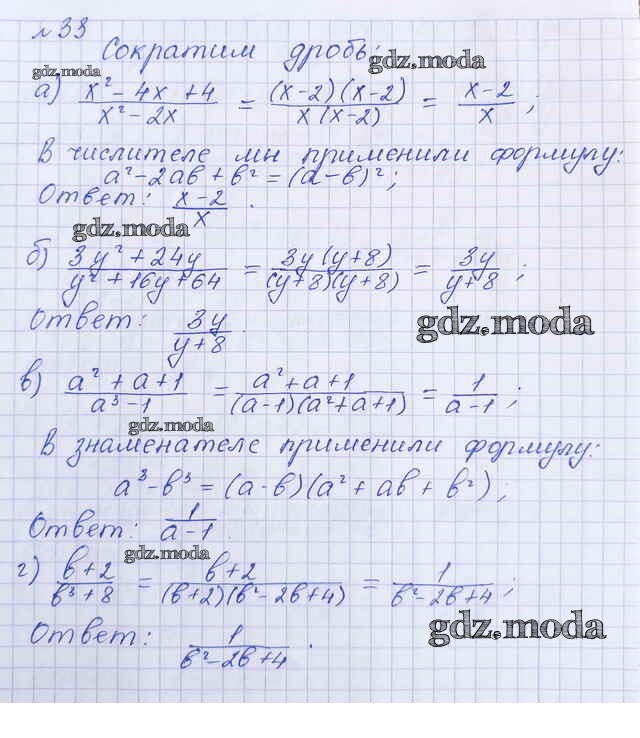 № 33
Сократим дробь:
gdz.moda
gdz.moda
а) (x² - 4x + 4)/(x² - 2x) = ((x-2)(x-2))/(x(x-2)) = (x-2)/x ;
В числителе мы применили формулу:
a² - 2ab + b² = (a-b)² ;
Ответ: (x-2)/x .
gdz.moda
б) (3y² + 24y)/(y² + 16y + 64) = (3y(y+8))/((y+8)(y+8)) = 3y/(y+8) ;
Ответ: 3y/(y+8) .
gdz.moda
в) (a² + a + 1)/(a³ - 1) = (a² + a + 1)/((a-1)(a² + a + 1)) = 1/(a-1) ;
gdz.moda
В знаменателе применили формулу:
a³ - b³ = (a-b)(a² + ab + b²) ;
Ответ: 1/(a-1) .
gdz.moda
г) (b+2)/(b³+8) = (b+2)/((b+2)(b² - 2b + 4)) = 1/(b² - 2b + 4) ;
gdz.moda
Ответ: 1/(b² - 2b + 4) .